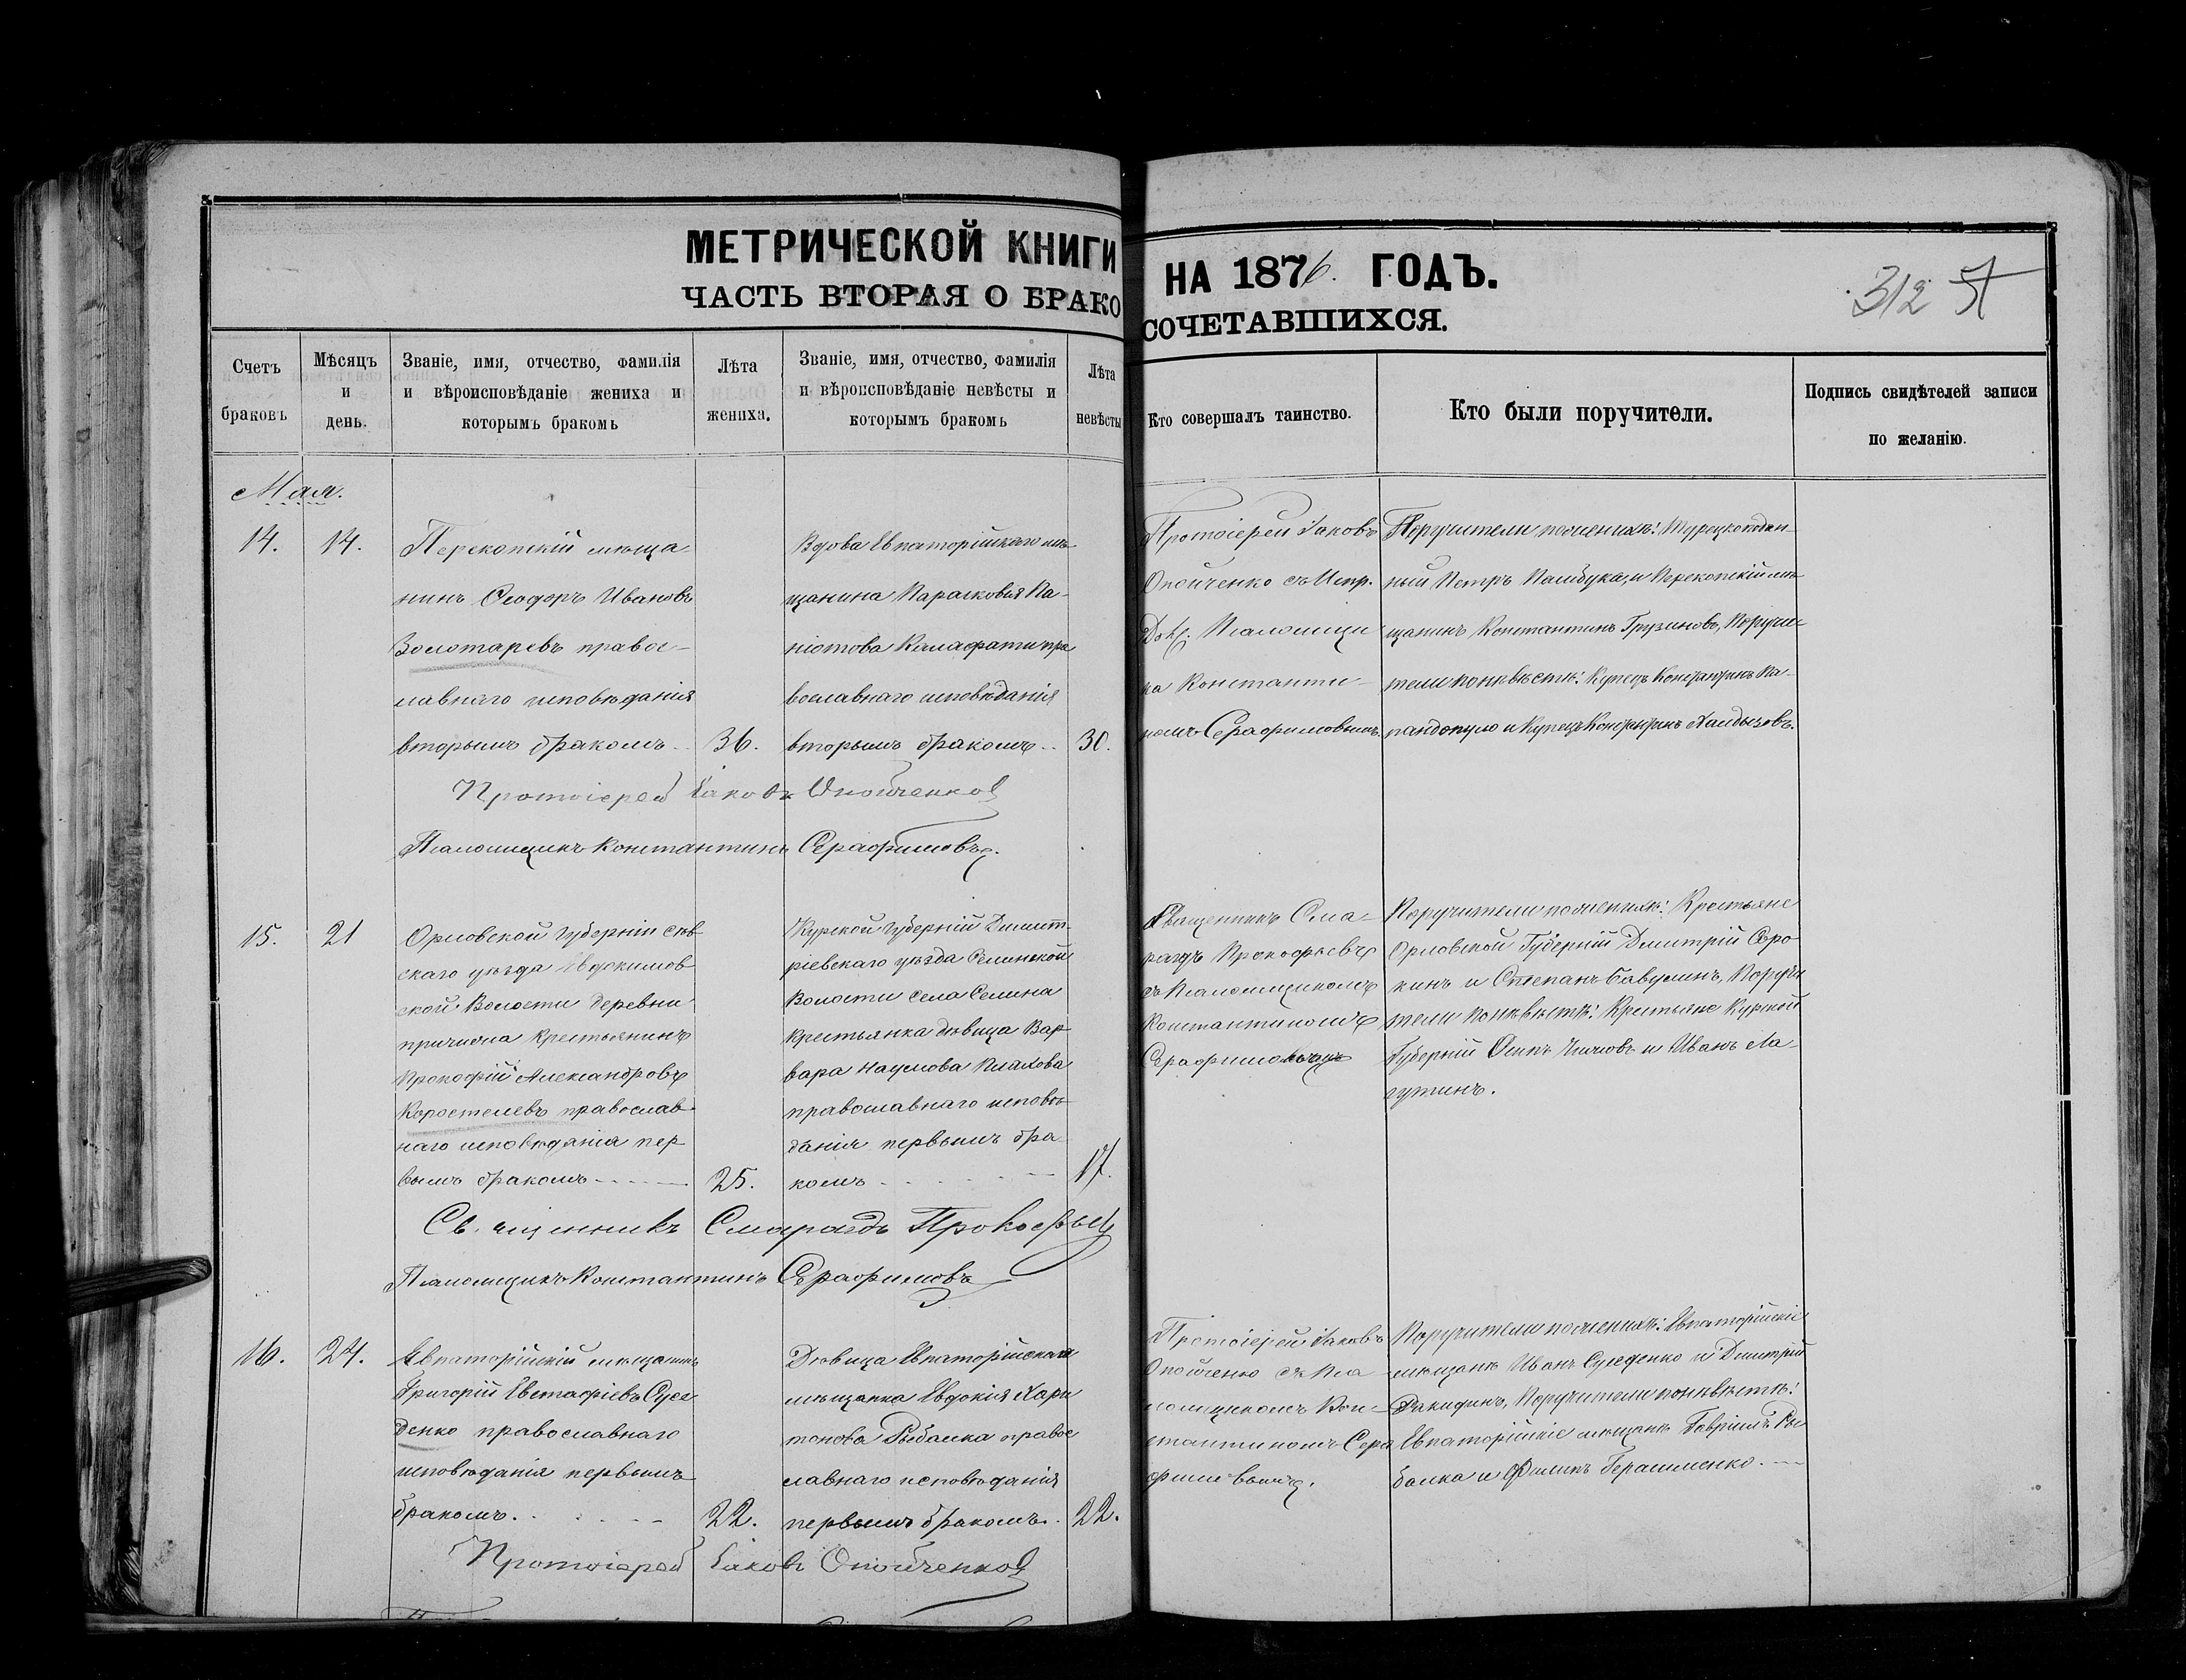 МЕТРИЧЕСКОЙ КНИГИ НА 1876. ГОДЪ.
ЧАСТЬ ВТОРАЯ О БРАКОСОЧЕТАВШИХСЯ.
312
Счетъ браковъ
Мѣсяцъ и день.
Званіе, имя, отчество, фамилія
и вѣроисповѣданіе жениха и
которымъ бракомъ
Лѣта жениха.
Званіе, имя, отчество, фамилія
и вѣроисповѣданіе невѣсты и
которымъ бракомъ
Лѣта невѣсты
Кто совершалъ таинство.
Кто были поручители.
Подпись свидѣтелей записи
по желанію.
Мая.
14.
14.
Перекопскій мѣща-
нинъ Ѳеодоръ Ивановъ
Золотаревъ правос-
лавнаго исповѣданія
вторымъ бракомъ
36.
Вдова Евпаторійскаго мѣ-
щанина Парасковія Па-
ніотова Калафати пра
вославнаго исповѣданія
вторымъ бракомъ
30.
Протоіерей Іаковъ
Опойченко съ Испр.
Долж. Псаломщи
ка Константи-
номъ Серафимовымъ.
Поручители по женихѣ: Турецкоподан-
ный Петръ Памбука, и Перекопскій мѣ
щанинъ Константинъ Грузиновъ, Поручи-
тели по невѣстѣ: Купецъ Константинъ Па-
пандопуло и Купецъ Константинъ Халдызовъ.
Протоіерей Іаковъ Опойченко
Псаломщикъ Константинъ Серафимовъ.
15.
21
Орловской Губерніи Сѣв
скаго уѣзда Евдокимов
ской Волости деревни
крестьянинъ
Прокофій Александровъ
Коростелевъ православ
наго исповѣданія пер
вымъ бракомъ
25.
Курской Губерніи Димит
ріевскаго уѣзда Селинской
Волости Села Селина
крестьянка дѣвица Вар
вара Наумова Плахова
православнаго исповѣ
данія первымъ бра
комъ
17.
Священникъ Сма-
рагдъ Прокофьевъ
съ Псаломщикомъ
Константиномъ
Серафимовымъ
Поручители по женихѣ: Крестьяне
Орловской Губерніи Дмитрій Соро
кинъ и Степанъ Бавулинъ, Поручи
тели по невѣстѣ: Крестьяне Курской
Губерніи Осипъ и Иванъ Ла-
гутинъ.
Священникъ Смарагдъ Прокофьевъ
Псаломщикъ Константинъ Серафимовъ
16.
24.
Евпаторійскій мѣщанинъ
Григорій Евстафіевъ Сусе
денко православнаго
исповѣданія первымъ
бракомъ.
22.
Дѣвица Евпаторійская
мѣщанка Евдокія Хари
тонова Рыбалка правос
лавнаго исповѣданія
первымъ бракомъ.
22.
Протоіерей Іаковъ
Опойченко съ Пса
ломщикомъ Кон-
стантиномъ Сера
фимовымъ.
Поручители по женихѣ: Евпаторійскіе
мѣщане Иванъ Суседенко и Дмитрій
Ракидинъ, Поручители по невѣстѣ:
Евпаторійскіе мѣщане Гавріилъ Ры
балка и Филипъ Герасименко.
Протоіерей Іаковъ Опойченко